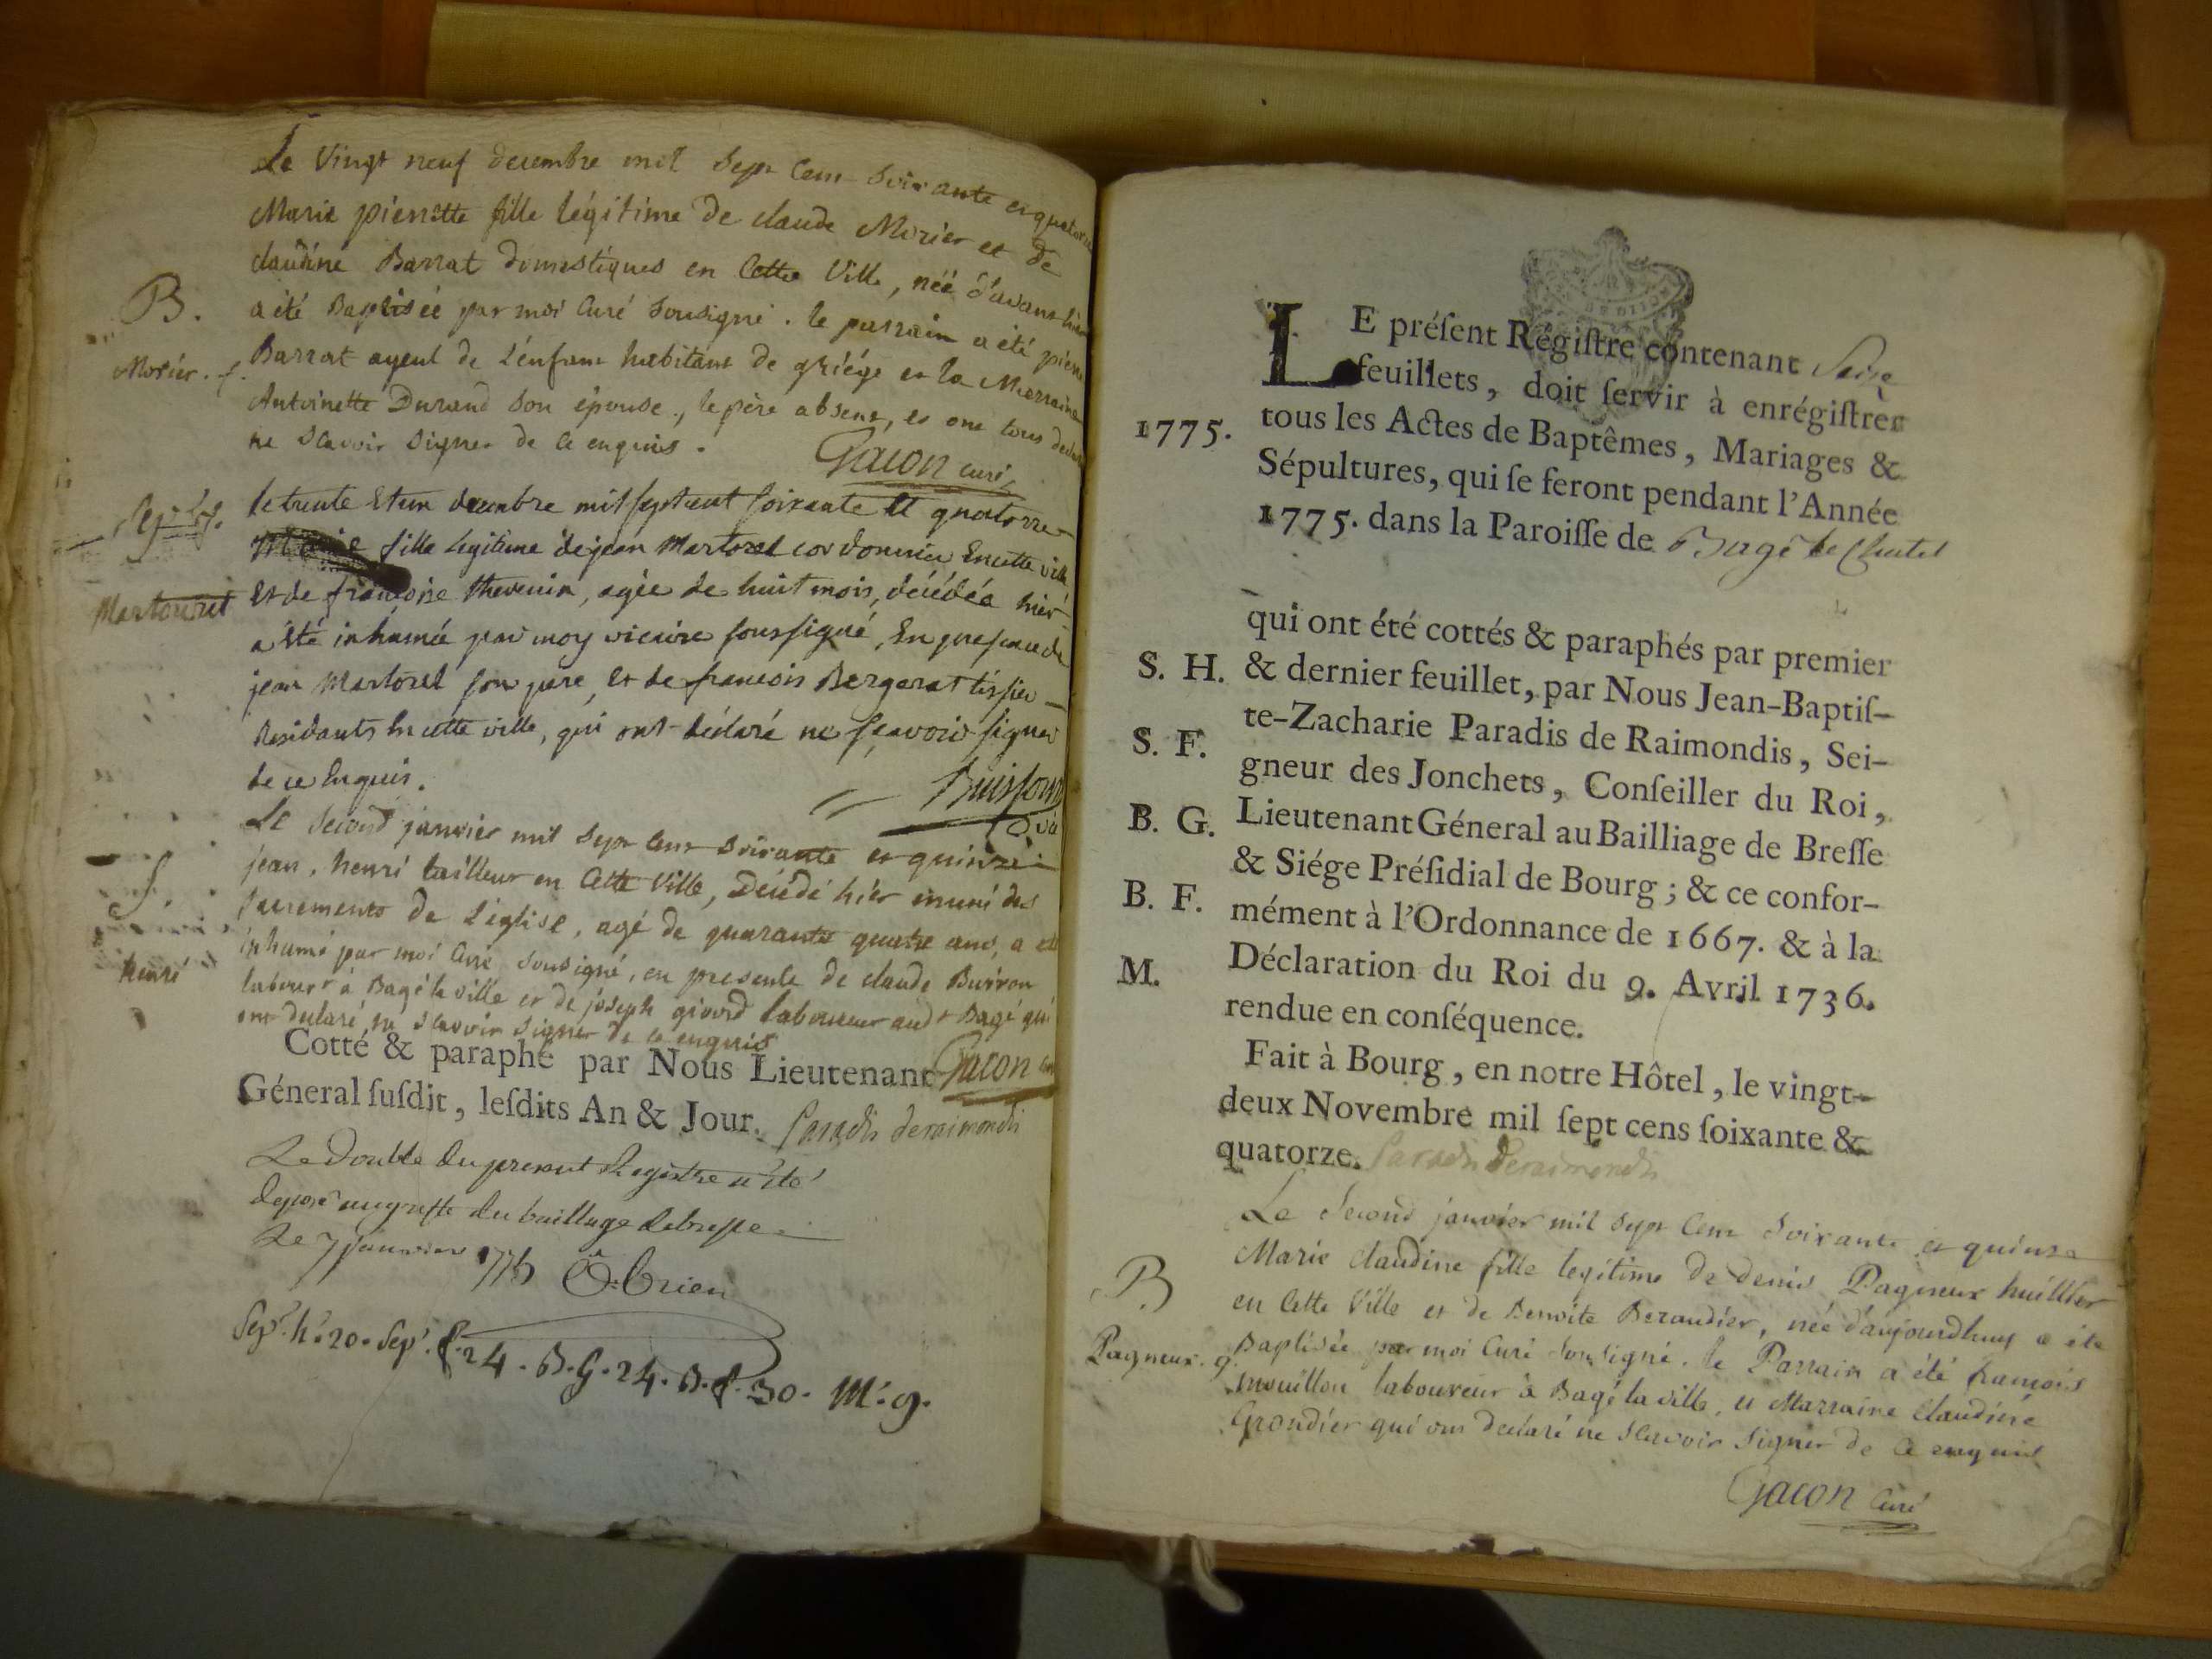 Le Vingt neuf decembre mil Sept Cent Soixante et quatorze
Marie pierrette fille légitime De claude Morier et De
claudine Barrat Domestiques en Cette Ville, néé d'avant hier
B.
a été Baptisée par moi Curé Sousigné. le parrain a été pierre
Morier. f.
Barrat ayeul de L'énfant habitant de griége et la Marraine
Antoinette Durand Son épouse, le père absent, et ont tous declaré
ne Scavoir Signer de Ce enquis.
Gacon curé
le trente Et un decembre mil sept cent soixante Et quatorze
Sep.re
fille Legitime de jean Martoret cordonnier En cette ville
Martouret
Et de françoise thevenin, agée de huit mois, décédéé hier
a été inhumée par moy vicaire soussigné, En presence de
jean Martoret son pere, Et de francois Bergerat tissier
Residants En cette ville, qui ont déclaré ne sçavoir signer
de ce Enquis.
Buisson
Le Second janvier mil Sept Cent Soixante et quinze
jean, henri tailleur en Cette Ville, Décédé hiér muni des
S.
Sacrements de L'église, agé de quarante quatre ans, a été
henri
inhumé par moi Curé Sousigné, en presence de claude Buiron
labour.r à Bagé la ville et de joseph giord laboureur aud.t Bagé qui
ont declaré ne Scavoir Signer De Ce enquis
Gacon
Cotté & paraphé par Nous Lieutenant
Géneral ſuſdit, leſdits An & Jour. Paradis deraimondis
Le Double du present Registre a Eté
deposé au greffe du bailliage de bresse
Le 7 janvier 1775 O. brien
Sep.r h. 20. Sep.r f. 24. B. G. 24. B. f. 30. M. 9.
LE préſent Régiſtre contenant Seize
feuillets, doit ſervir à enrégiſtrer
1775. tous les Actes de Baptêmes, Mariages &
Sépultures, qui ſe feront pendant l'Année
1775. dans la Paroiſſe de Bagé le Chatel
qui ont été cottés & paraphés par premier
S. H. & dernier feuillet, par Nous Jean-Baptiſ-
te-Zacharie Paradis de Raimondis, Sei-
S. F. gneur des Jonchets, Conſeiller du Roi,
B. G. Lieutenant Géneral au Bailliage de Breſſe
& Siége Préſidial de Bourg; & ce confor-
B. F. mément à l'Ordonnance de 1667. & à la
Déclaration du Roi du 9. Avril 1736.
M. rendue en conſéquence.
Fait à Bourg, en notre Hôtel, le vingt-
deux Novembre mil ſept cens ſoixante &
quatorze. Paradis deraimondis
Le Second janvier mil Sept Cent Soixante et quinze
Marie claudine fille legitime de denis Pagneux huillier
B
en Cette Ville et de Benoite Beraudier, née d'aujourdhuy a été
Pagneux. g.
Baptisée par moi Curé Sousigné. le Parrain a été francois
mouillon laboureur à Bagé la ville, et Marraine Claudine
Grondier qui ont declaré ne Scavoir Signer de Ce enquis
Gacon Curé